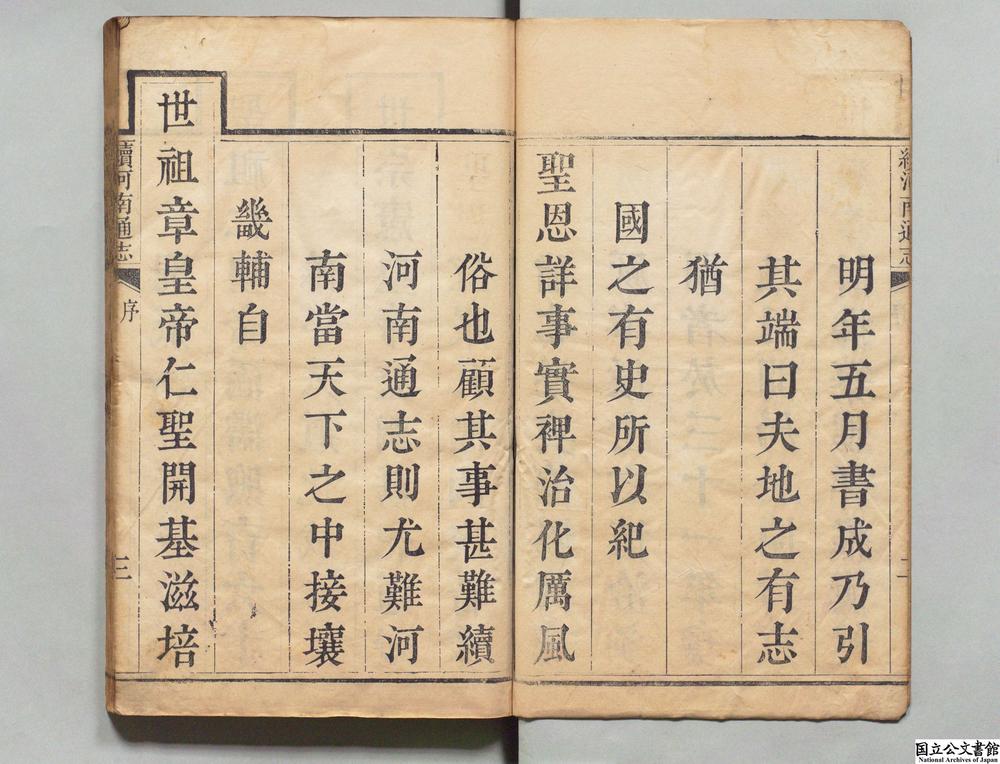 明年五月書成乃引
其端曰夫地之有志
猶
國之有史所以紀
聖恩詳事實裨治化厲風
俗也顧其事甚難續
河南通志則尤難河
南當天下之中接壤
畿輔自
世祖章皇帝仁聖開基滋培
續河南通志
序
三
国立公文書館
National Archives of Japan